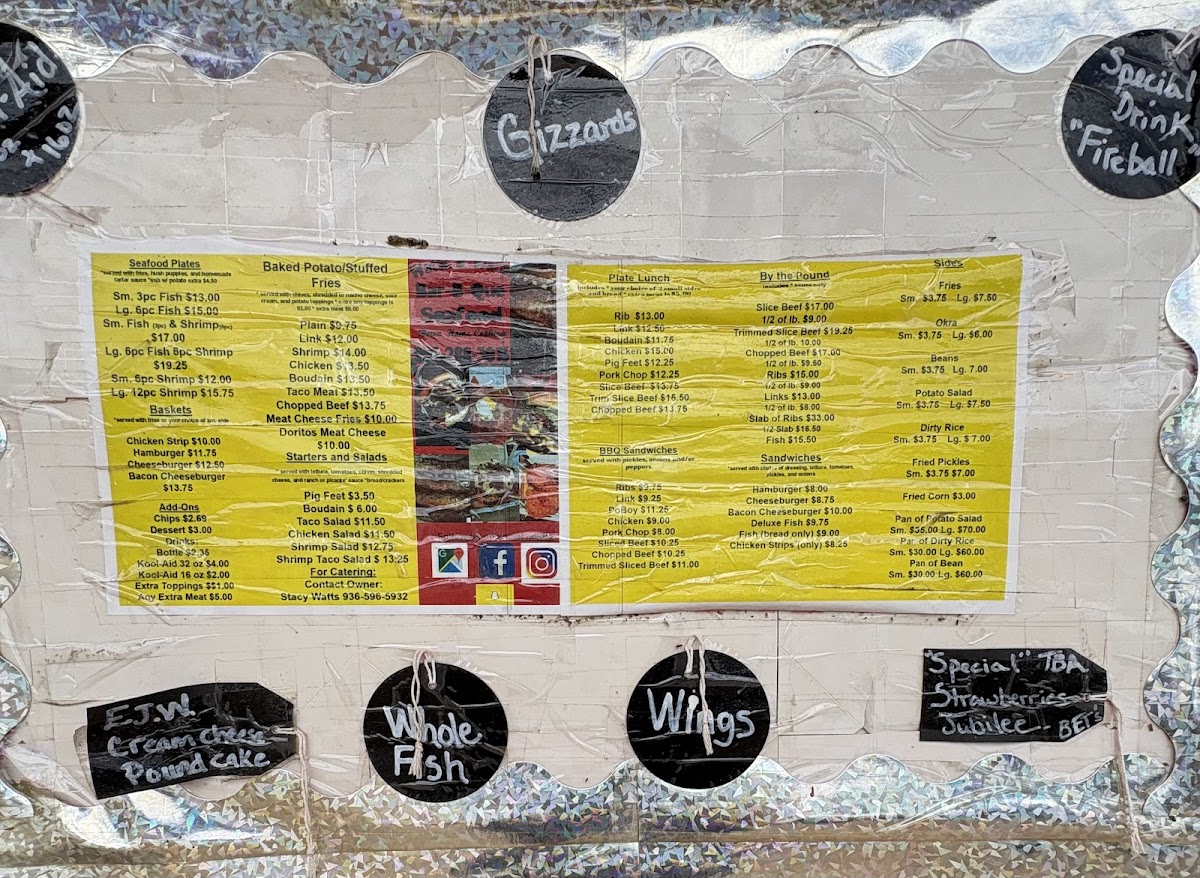 -Aid
x 16oz
Gizzards
Special
Drink
"Fireball"
Seafood Plates
*served with fries, hush puppies, and homemade
tartar sauce *sub w/ potato extra $4.50
Sm. 3pc Fish $13.00
Lg. 6pc Fish $15.00
Sm. Fish (3pc) & Shrimp(6pc)
$17.00
Lg. 6pc Fish 6pc Shrimp
$19.25
Sm. 6pc Shrimp $12.00
Lg. 12pc Shrimp $15.75
Baskets
*served with fries or your choice of sm. side
Chicken Strip $10.00
Hamburger $11.75
Cheeseburger $12.50
Bacon Cheeseburger
$13.75
Add-Ons
Chips $2.69
Dessert $3.00
Drinks:
Bottle $2.35
Kool-Aid 32 oz $4.00
Kool-Aid 16 oz $2.00
Extra Toppings $$1.00
Any Extra Meat $5.00
Baked Potato/Stuffed
Fries
*served with chives, shredded or nacho cheese, sour
cream, and potato toppings * extra any toppings is
$1.00 * extra meat $5.00
Plain $9.75
Link $12.00
Shrimp $14.00
Chicken $13.50
Boudain $13.50
Taco Meat $13.50
Chopped Beef $13.75
Meat Cheese Fries $10.00
Doritos Meat Cheese
$10.00
Starters and Salads
* served with lettuce, tomatoes, chives, shredded
cheese, and ranch or picante' sauce *bread/crackers
Pig Feet $3.50
Boudain $ 6.00
Taco Salad $11.50
Chicken Salad $11.50
Shrimp Salad $12.75
Shrimp Taco Salad $ 13.25
For Catering:
Contact Owner:
Stacy Watts 936-596-5932
Seafood
Plate Lunch
Includes *your choice of 2 small sides
and bread * extra meat is $5.00
Rib $13.00
Link $12.50
Boudain $11.75
Chicken $15.00
Pig Feet $12.25
Pork Chop $12.25
Slice Beef $13.75
Trim Slice Beef $15.50
Chopped Beef $13.75
BBQ Sandwiches
served with pickles, onions and/or
peppers
Ribs $9.75
Link $9.25
PoBoy $11.25
Chicken $9.00
Pork Chop $8.00
Sliced Beef $10.25
Chopped Beef $10.25
Trimmed Sliced Beef $11.00
By the Pound
Slice Beef $17.00
1/2 of lb. $9.00
Trimmed Slice Beef $19.25
1/2 of lb. 10.00
Chopped Beef $17.00
1/2 of lb. $9.50
Ribs $15.00
1/2 of lb. $9.00
Links $13.00
1/2 of lb. $8.00
Slab of Ribs $33.00
1/2 Slab $16.50
Fish $15.50
Sandwiches
*served with choice of dressing, lettuce, tomatoes,
pickles, and onions
Hamburger $8.00
Cheeseburger $8.75
Bacon Cheeseburger $10.00
Deluxe Fish $9.75
Fish (bread only) $9.00
Chicken Strips (only) $8.25
Sides
Fries
Sm. $3.75 Lg. $7.50
Okra
Sm. $3.75 Lg. $6.00
Beans
Sm. $3.75 Lg. 7.00
Potato Salad
Sm. $3.75 Lg. $7.50
Dirty Rice
Sm. $3.75 Lg. $ 7.00
Fried Pickles
Sm. $3.75 $7.00
Fried Corn $3.00
Pan of Potato Salad
Sm. $35.00 Lg. $70.00
Pan of Dirty Rice
Sm. $30.00 Lg. $60.00
Pan of Bean
Sm. $30.00 Lg. $60.00
E.J.W.
Cream cheese
Pound cake
Whole
Fish
Wings
"Special" TBA
Strawberries
Jubilee BET's